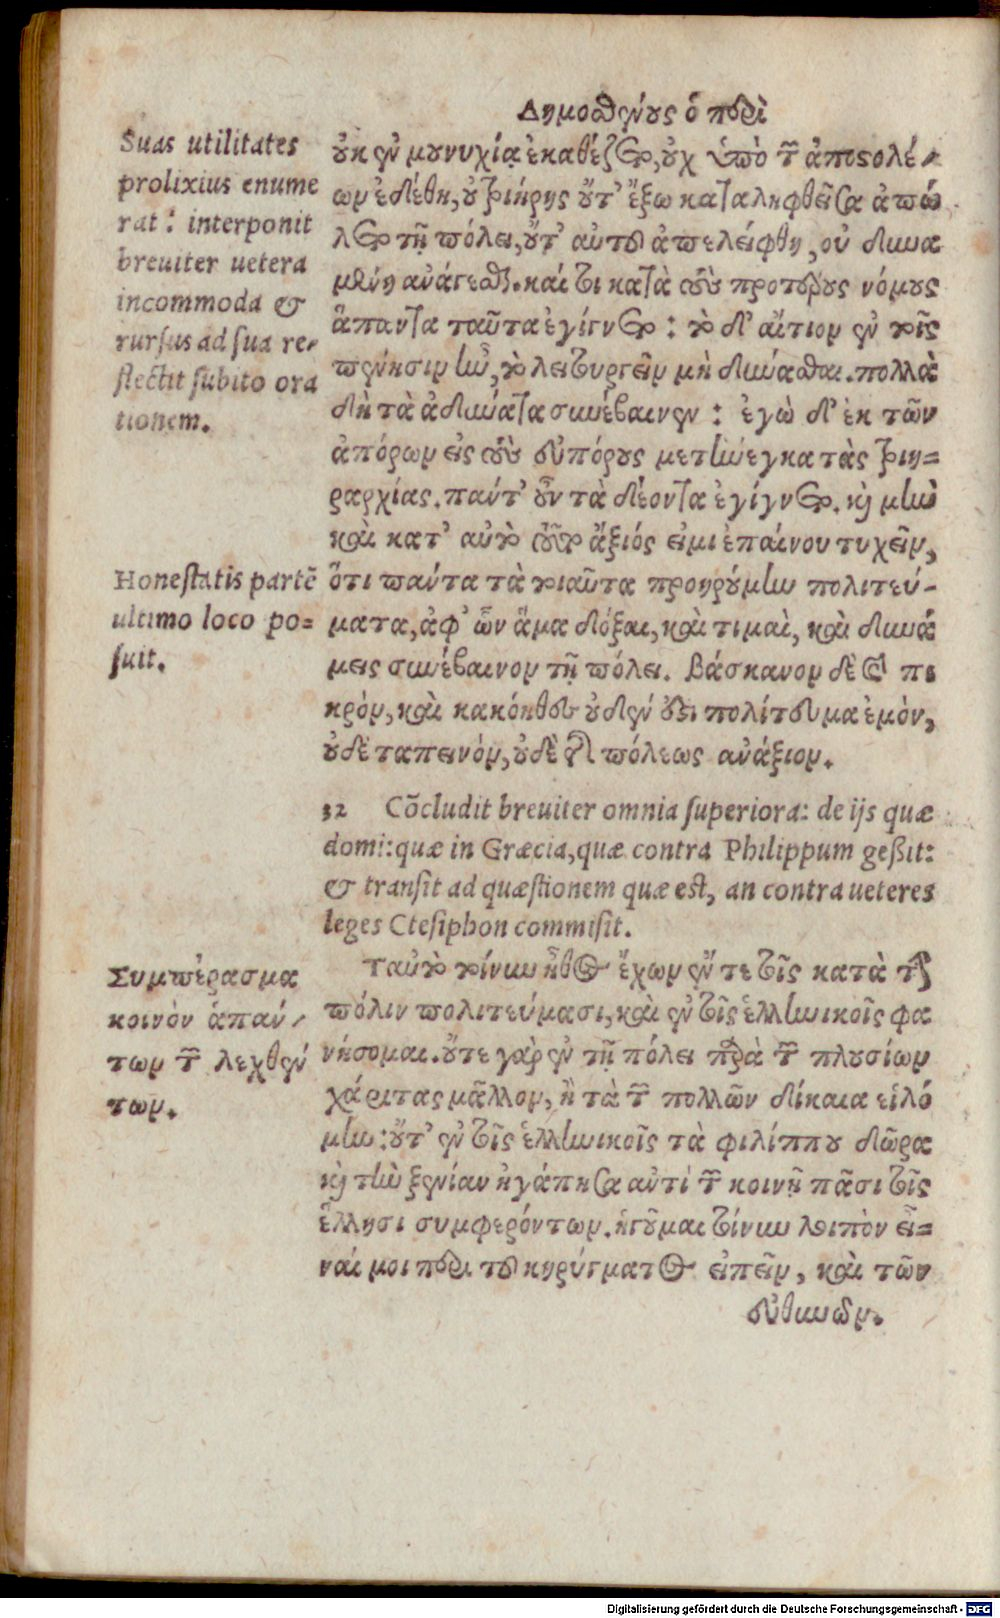 Δημοσθένους ὁ περὶ
Suas utilitates
prolixius enume
rat: interponit
breuiter uetera
incommoda &
rursus ad sua re-
flectit subito ora
tionem.
οὐκ ἐν μουνυχίᾳ ἐκαθέζετο, οὐχ ὑπὸ τῶν ἀποστολέ-
ων ἐδέθη, οὐ τριήρης οὔτ' ἔξω καταληφθεῖσα ἀπώ
λετο τῇ πόλει, οὔτ' αὐτοῦ ἀπελείφθη, οὐ δυνα
μένη ἀνάγεσθαι. καί τοι κατὰ τοὺς προτέρους νόμους
ἅπαντα ταῦτα ἐγίγνετο: τὸ δ' αἴτιον ἐν τοῖς
πένησιν ἦν, τὸ λειτουργεῖν μὴ δύνασθαι. πολλὰ
δὴ τὰ ἀδύνατα συνέβαινεν: ἐγὼ δ' ἐκ τῶν
ἀπόρων εἰς τοὺς εὐπόρους μετήνεγκα τὰς τριη=
ραρχίας. πάντ' οὖν τὰ δέοντα ἐγίγνετο. καὶ μὴν
καὶ κατ' αὐτὸ τοῦτο ἄξιός εἰμι ἐπαίνου τυχεῖν,
Honestatis partē
ultimo loco po=
suit.
ὅτι πάντα τὰ τοιαῦτα προηρούμην πολιτεύ-
ματα, ἀφ' ὧν ἅμα δόξαι, καὶ τιμαὶ, καὶ δυνά
μεις συνέβαινον τῇ πόλει. βάσκανον δὲ καὶ πι
κρὸν, καὶ κακόηθες οὐδέν ἐστι πολίτευμα ἐμὸν,
οὐδὲ ταπεινὸν, οὐδὲ τῆς πόλεως ἀνάξιον.
32 Cōcludit breuiter omnia superiora: de ijs quæ
domi: quæ in Græcia, quæ contra Philippum geßit:
& transit ad quæstionem quæ est, an contra ueteres
leges Ctesiphon commisit.
Συμπέρασμα
κοινὸν ἁπάν-
των τῶν λεχθέν
των.
Ταὐτὸ τοίνυν ἦθος ἔχων ἔν τε τοῖς κατὰ τὴν
πόλιν πολιτεύμασι, καὶ ἐν τοῖς ἑλληνικοῖς φα
νήσομαι. οὔτε γὰρ ἐν τῇ πόλει παρὰ τῶν πλουσίων
χάριτας μᾶλλον, ἢ τὰ τῶν πολλῶν δίκαια εἱλό
μην: οὔτ' ἐν τοῖς ἑλληνικοῖς τὰ φιλίππου δῶρα
καὶ τὴν ξενίαν ἠγάπησα ἀντὶ τῶν κοινῇ πᾶσι τοῖς
ἕλλησι συμφερόντων. ἡγοῦμαι τοίνυν λοιπὸν εἶ=
ναί μοι περὶ τοῦ κηρύγματος εἰπεῖν, καὶ τῶν
εὐθυνῶν.
Digitalisierung gefördert durch die Deutsche Forschungsgemeinschaft - DFG